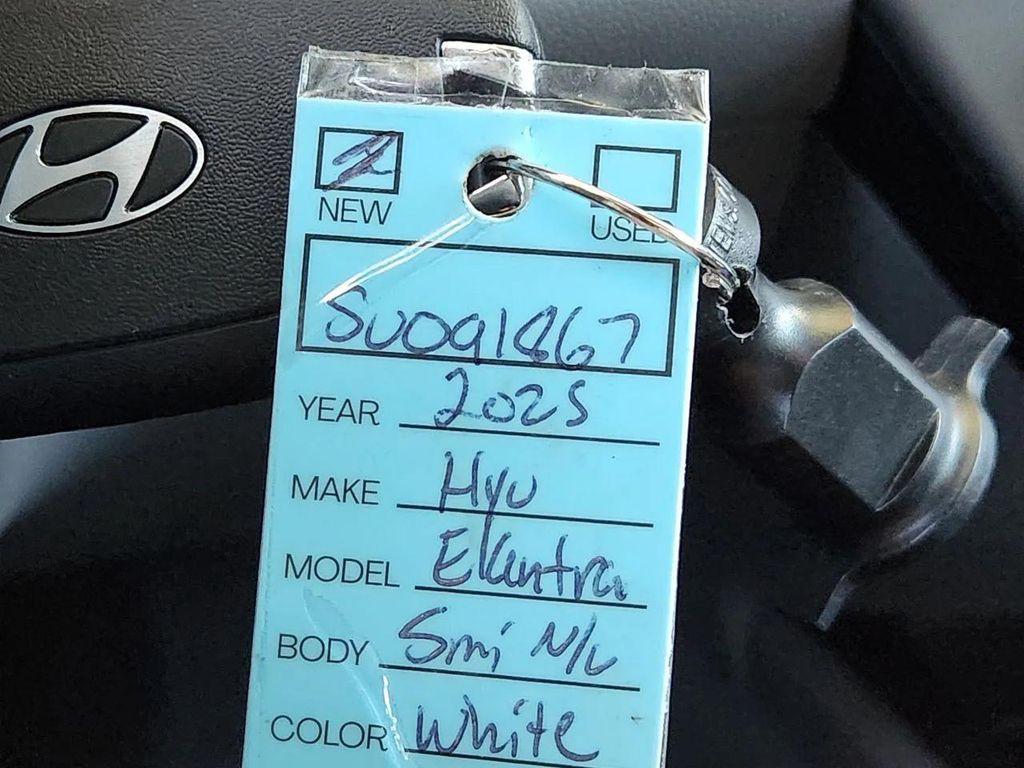 NEW USED
SU091867
YEAR 2025
MAKE Hyu
MODEL Elantra
BODY Smi N/L
COLOR White